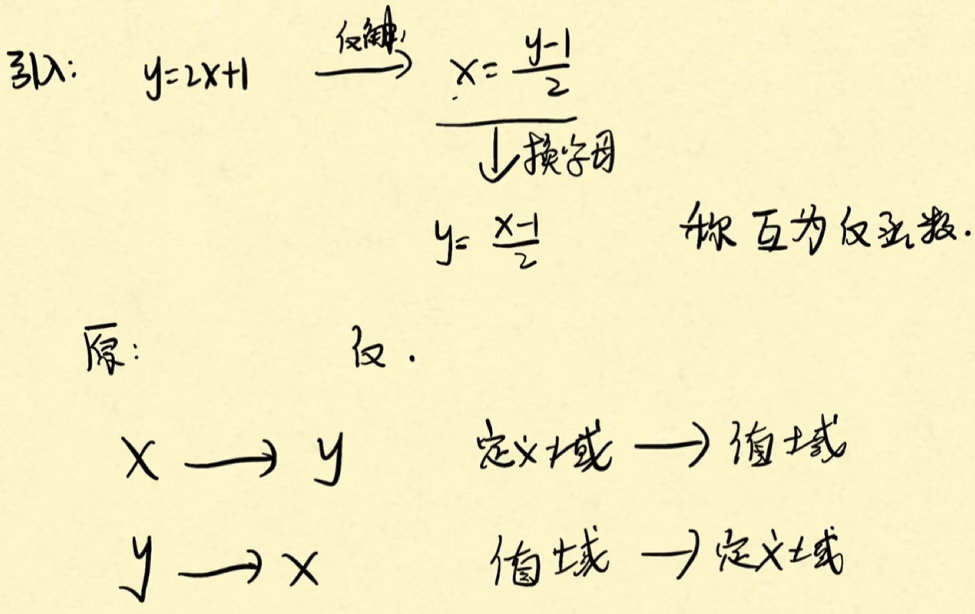 引入: y=2x+1 反解 x=(y-1)/2
↓换字母
y=(x-1)/2 称互为反函数.
原: 反.
x → y 定义域 → 值域
y → x 值域 → 定义域